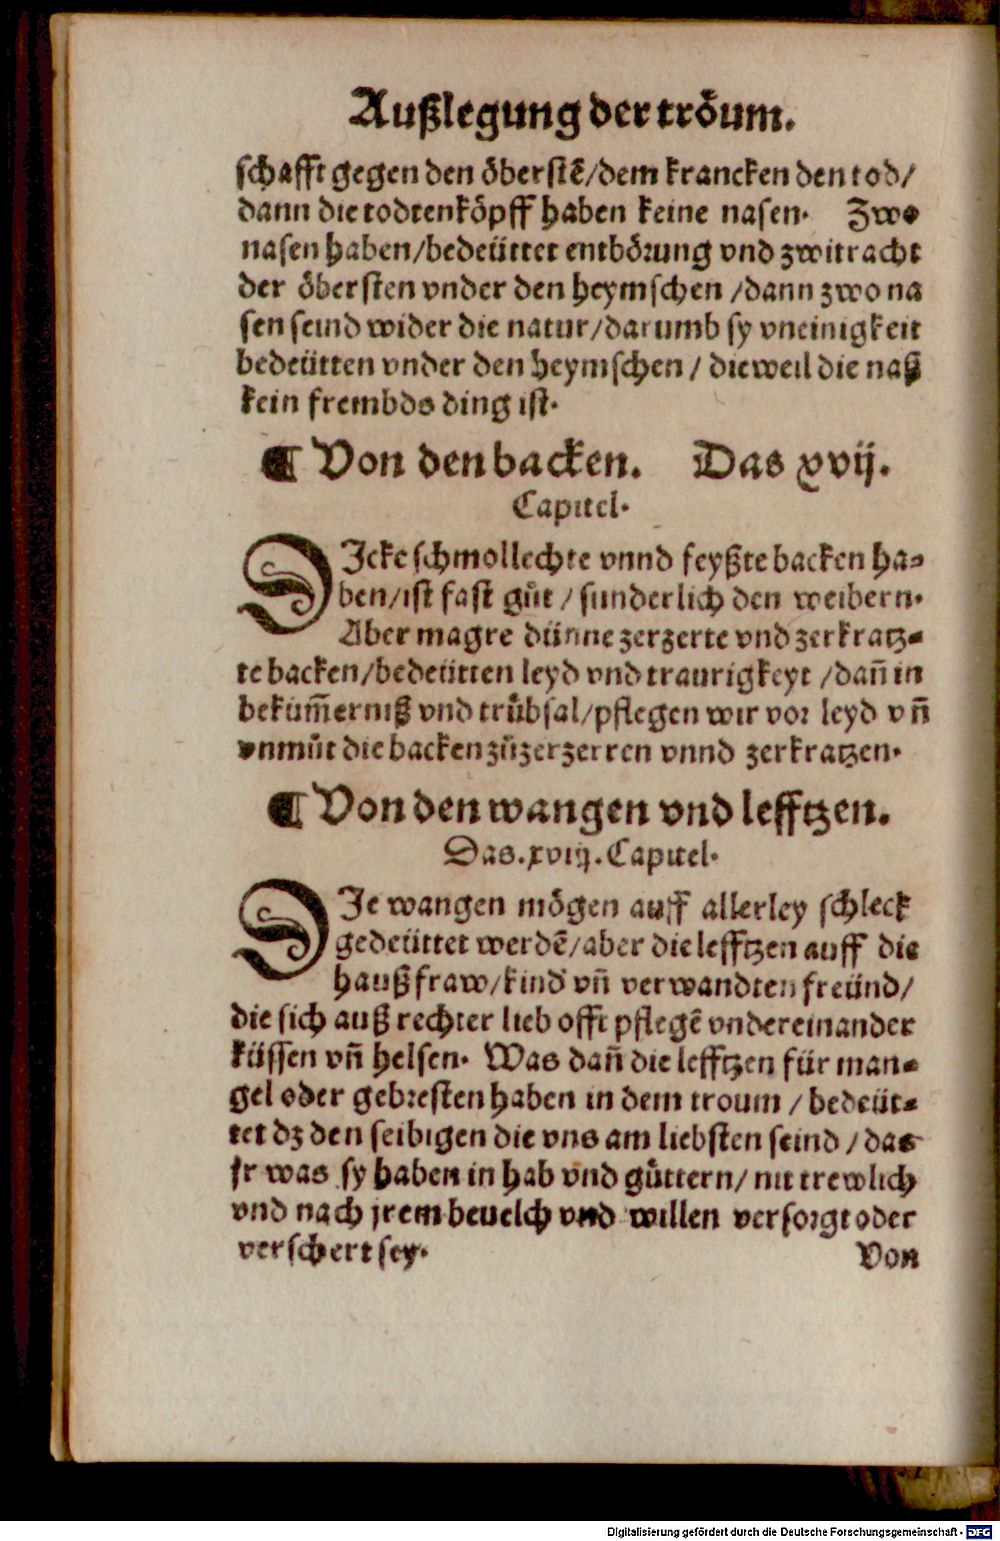 Außlegung der trőum.
schafft gegen den őberstẽ/dem krancken den tod/
dann die todtenköpff haben keine nasen. Zwo
nasen haben/bedeüttet entbőrung vnd zwitracht
der őbersten vnder den heymschen /dann zwo na
sen seind wider die natur/darumb sy vneinigkeit
bedeütten vnder den heymschen / dieweil die naß
kein frembds ding ist.
¶ Von den backen. Das xvij.
Capitel.
DIcke schmollechte vnnd feyßte backen ha-
ben/ist fast gůt / sunderlich den weibern.
Aber magre dünne zerzerte vnd zerkratz-
te backen/bedeütten leyd vnd traurigkeyt /dañ in
beküm̃erniß vnd trůbsal/pflegen wir vor leyd vñ
vnmůt die backen zůzerzerren vnnd zerkratzen.
¶ Von den wangen vnd lefftzen.
Das.xviij.Capitel.
DIe wangen mőgen auff allerley schleck
gedeüttet werdẽ/aber die lefftzen auff die
haußfraw/kind vñ verwandten freünd/
die sich auß rechter lieb offt pflegẽ vndereinander
küssen vñ helsen. Was dañ die lefftzen für man-
gel oder gebresten haben in dem troum / bedeüt-
tet dz den seibigen die vns am liebsten seind / das
jr was sy haben in hab vnd gůttern/ nit trewlich
vnd nach jrem beuelch vnd willen versorgt oder
verschert sey.
Von
Digitalisierung gefördert durch die Deutsche Forschungsgemeinschaft - DFG